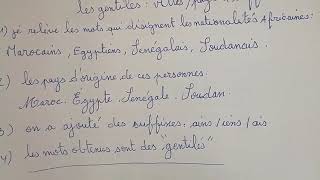 les gentilés : villes/pays
1) je relève les mots qui désignent les nationalités Africaines:
Marocains, Egyptiens, Sénégalais, Soudanais.
2) les pays d'origine de ces personnes.
Maroc. Égypte. Sénégale. Soudan.
3) on a ajouté des suffixes: ains/iens/ais
4) les mots obtenus sont des "gentilés"